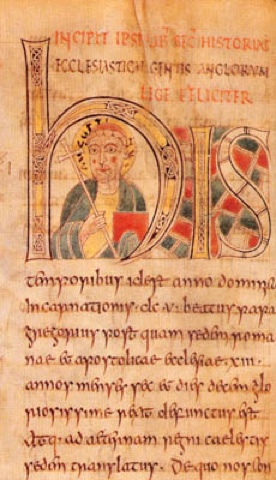 INCIPIT SEC HISTORIAE
ECCLESIASTICAE GENTIS ANGLORUM
LEGE FELICITER
his
temporibus idest anno dominicae
Incarnationis dc v beatus papa
gregorius post quam sedem roma
nae et apostolicae ecclesiae xiii
annos menses sex et dies decem glo
riosissime rexit defunctus est
atque ad aeternam regni caelestis
sedem translatus De quo nos con